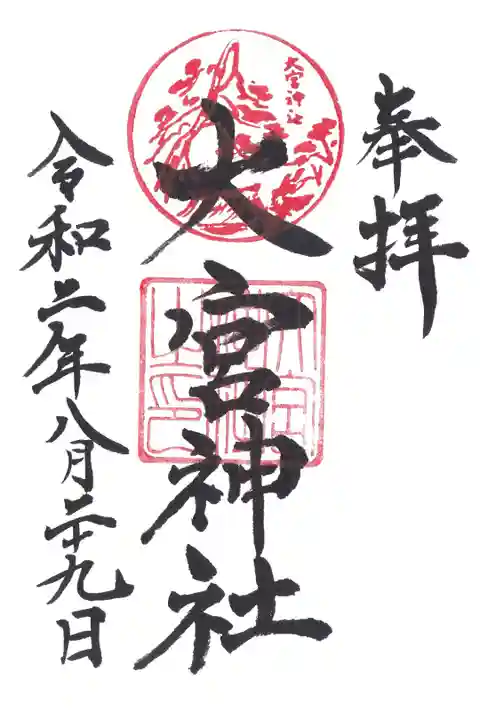 奉拝
大宮神社
大宮神社
令和二年八月二十九日